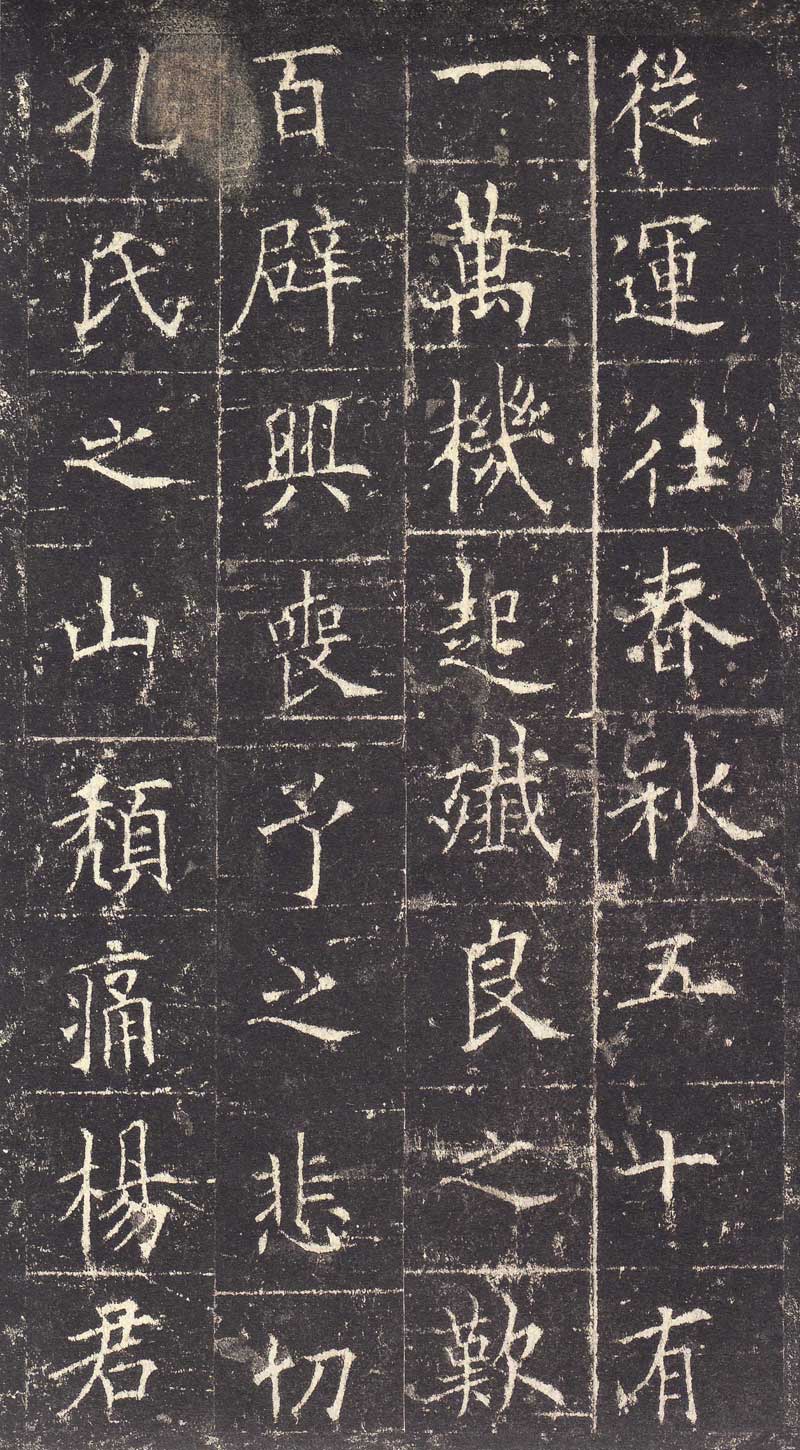 從運往春秋五十有
一萬機起殲良之歎
百辟興喪予之悲切
孔氏之山頹痛楊君